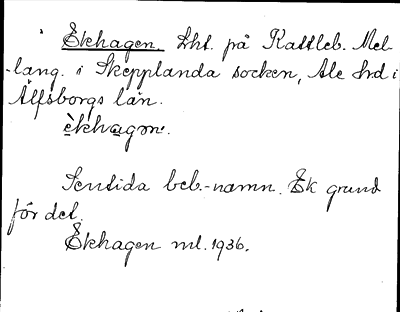 Ekhagen. Lht. på Kattleb. Mel-
lang. i Skepplanda socken, Ale hrd i
Älfsborgs län.
èkhagɷn.
Sentida beb.-namn. Ek grund
för det.
Ekhagen ml. 1936.